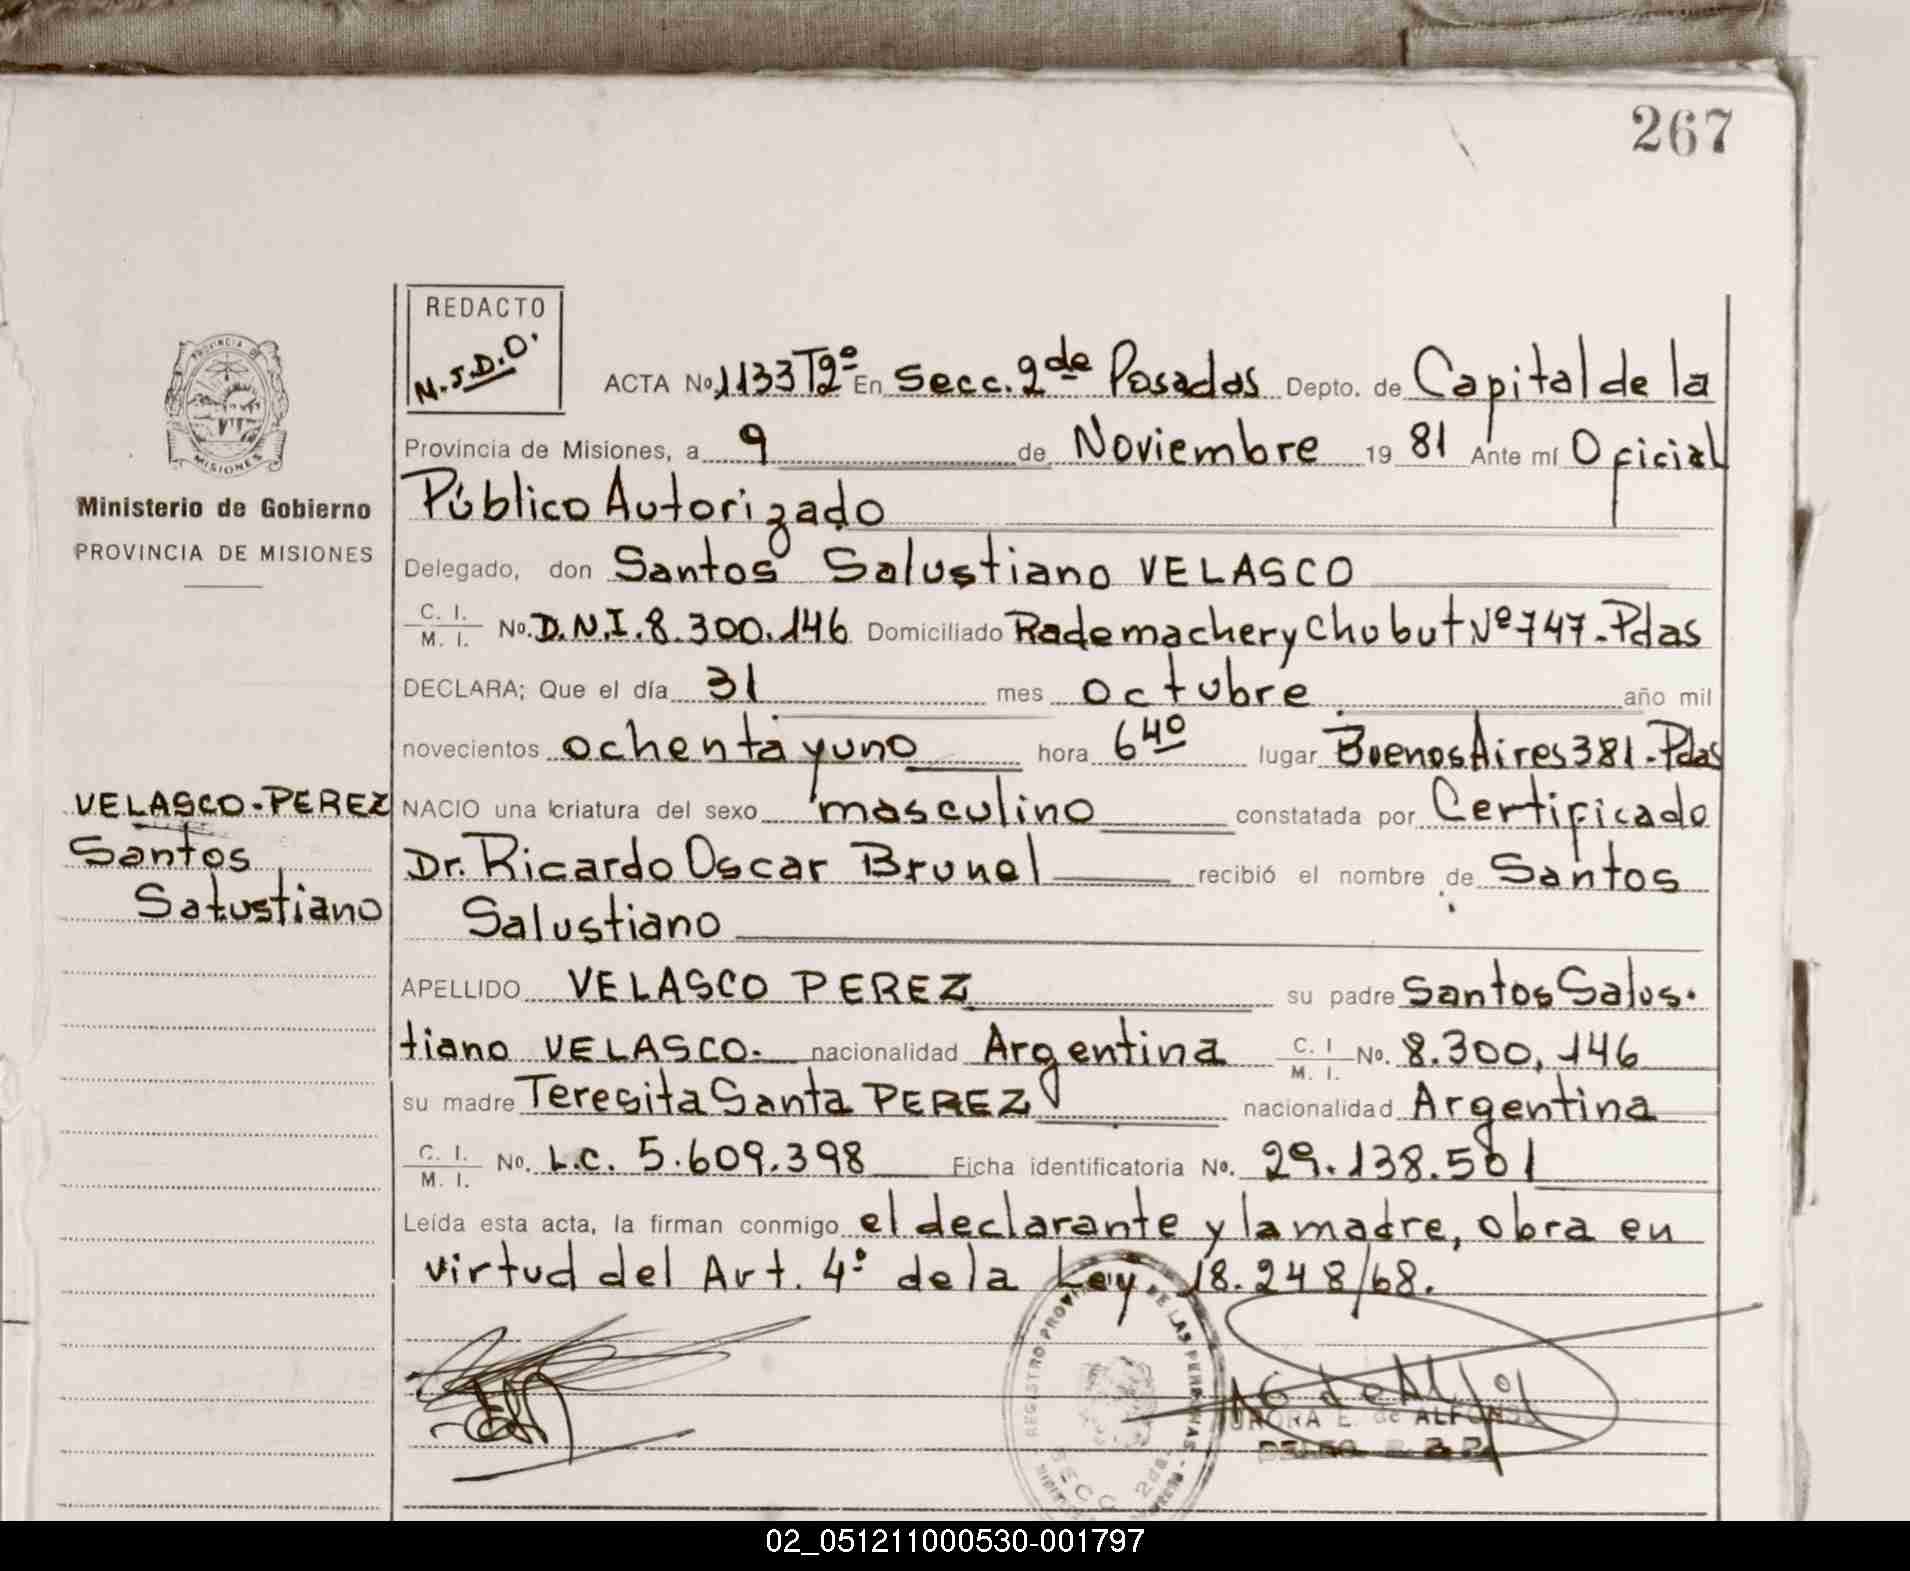 267
REDACTO
M.J.D.O.
ACTA No. 1133 T2º En Secc. 2de Posadas Depto. de Capital de la
Provincia de Misiones, a 9 de Noviembre 19 81 Ante mí Oficial
Público Autorizado
Delegado, don Santos Salustiano VELASCO
C. I. M. I. No. D.N.I. 8.300.146 Domiciliado Rademacher y Chubut Nº 747.-Pdas
DECLARA; Que el día 31 mes octubre año mil
novecientos ochenta y uno hora 6 40 lugar Buenos Aires 381.-Pdas
NACIO una criatura del sexo masculino constatada por Certificado
Dr. Ricardo Oscar Brunel recibió el nombre de Santos
Salustiano
APELLIDO VELASCO PEREZ su padre Santos Salus-
tiano VELASCO.- nacionalidad Argentina C. I M. I. No. 8.300,146
su madre Teresita Santa PEREZ nacionalidad Argentina
C. I. M. I. No. L.C. 5.609.398 Ficha identificatoria No. 29.138.501
Leída esta acta, la firman conmigo el declarante y la madre, obra en
virtud del Art. 4º de la Ley 18.248/68.
PROVINCIA DE
MISIONES
Ministerio de Gobierno
PROVINCIA DE MISIONES
VELASCO-PEREZ
Santos
Salustiano
REGISTRO PROVIN DE LAS PERSONAS
SECC. 2da.
AURORA E. de ALFONSO
02_051211000530-001797